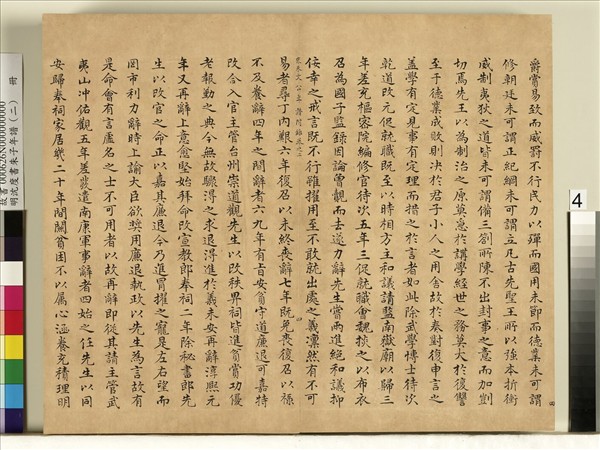 爵賞易致而威罰不行民力以殫而國用未節而德業未可謂
修朝廷未可謂正紀綱未可謂立凡古先聖王所以強本折衝
威制夷狄之道皆未可謂備三劄所陳不出封事之意而加剴
切焉先王以為制治之原莫急於講學經世之務莫大於復讐
至于德業成敗則决於君子小人之用舍故於奏對復申言之
蓋學有定見事有定理而措之於言者如此除武學博士待次
乾道改元促就職既至以時相方主和議請監南嶽廟以歸三
年差充樞密院編修官待次五年三促就職會魏掞之以布衣
召為國子監錄因論曾覿而去遂力辭先生嘗兩進絕和議抑
佞幸之戒言既不行雖擢用至不敢就出處之義凜然有不可
易者尋丁内艱六年復召以未終喪辭七年既免喪復召以祿
不及養辭四年之間辭者六九年有旨安貧守道廉退可嘉特
改合入官主管台州崇道觀先生以改秩畀祠皆進賢賞功優
老報勤之典今無故驟得之求退得進於義未安再辭淳熙元
年又再辭上意愈堅始拜命改宣教郎奉祠二年除秘書郎先
生以改官之命正以嘉其廉退今乃進冒擢之寵是左右望而
罔市利力辭時上諭大臣欲奬用廉退執政以先生為言故有
是命會有言虛名之士不可用者以故再辭即從其請主管武
夷山冲佑觀五年差發遣南康軍事辭者四始之任先生以同
安歸奉祠家居幾二十年間關貧困不以屬心涵養充積理明
明沈度書朱子年譜(二) 冊
4